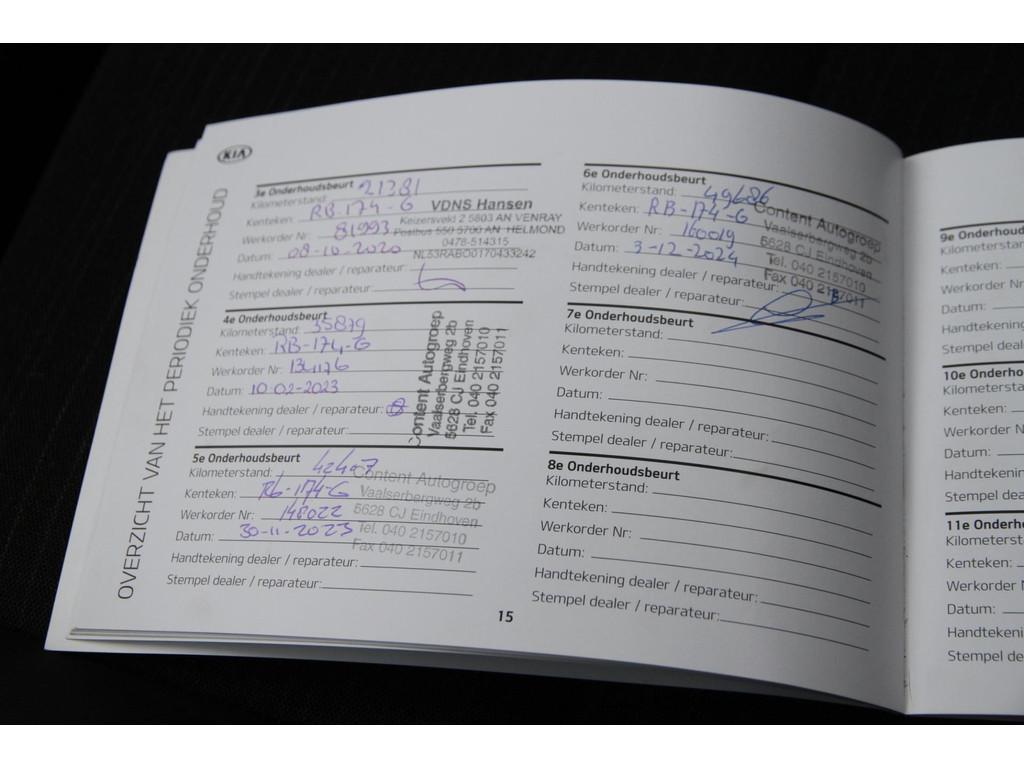 KIA
OVERZICHT VAN HET PERIODIEK ONDERHOUD
3e Onderhoudsbeurt
Kilometerstand: 21381
Kenteken: RB-174-G
Werkorder Nr: 81993
Datum: 08-10-2020
Handtekening dealer / reparateur:
Stempel dealer / reparateur:
VDNS Hansen
Keizersveld 2 5803 AN VENRAY
Postbus 550 5700 AN HELMOND
0478-514315
NL53RABO0170433242
4e Onderhoudsbeurt
Kilometerstand: 35879
Kenteken: RB-174-G
Werkorder Nr:
Datum: 10-02-2023
Handtekening dealer / reparateur:
Stempel dealer / reparateur:
Content Autogroep
Vaalserbergweg 2b
5628 CJ Eindhoven
Tel. 040 2157010
Fax 040 2157011
5e Onderhoudsbeurt
Kilometerstand:
Kenteken: RB-174-G
Werkorder Nr: 148022
Datum: 30-11-2023
Handtekening dealer / reparateur:
Stempel dealer / reparateur:
Content Autogroep
Vaalserbergweg 2b
5628 CJ Eindhoven
Tel. 040 2157010
Fax 040 2157011
15
6e Onderhoudsbeurt
Kilometerstand: 49686
Kenteken: RB-174-G
Werkorder Nr: 160019
Datum: 3-12-2024
Handtekening dealer / reparateur:
Stempel dealer / reparateur:
Content Autogroep
Vaalserbergweg 2b
5628 CJ Eindhoven
Tel. 040 2157010
Fax 040 2157011
7e Onderhoudsbeurt
Kilometerstand:
Kenteken:
Werkorder Nr:
Datum:
Handtekening dealer / reparateur:
Stempel dealer / reparateur:
8e Onderhoudsbeurt
Kilometerstand:
Kenteken:
Werkorder Nr:
Datum:
Handtekening dealer / reparateur:
Stempel dealer / reparateur:
9e Onderhoud
Kilometerstan
Kenteken:
Werkorder Nr
Datum:
Handtekening
Stempel deal
10e Onderho
Kilometersta
Kenteken:
Werkorder N
Datum:
Handtekenin
Stempel dea
11e Onderh
Kilometerst
Kenteken:
Werkorder
Datum:
Handtekeni
Stempel de